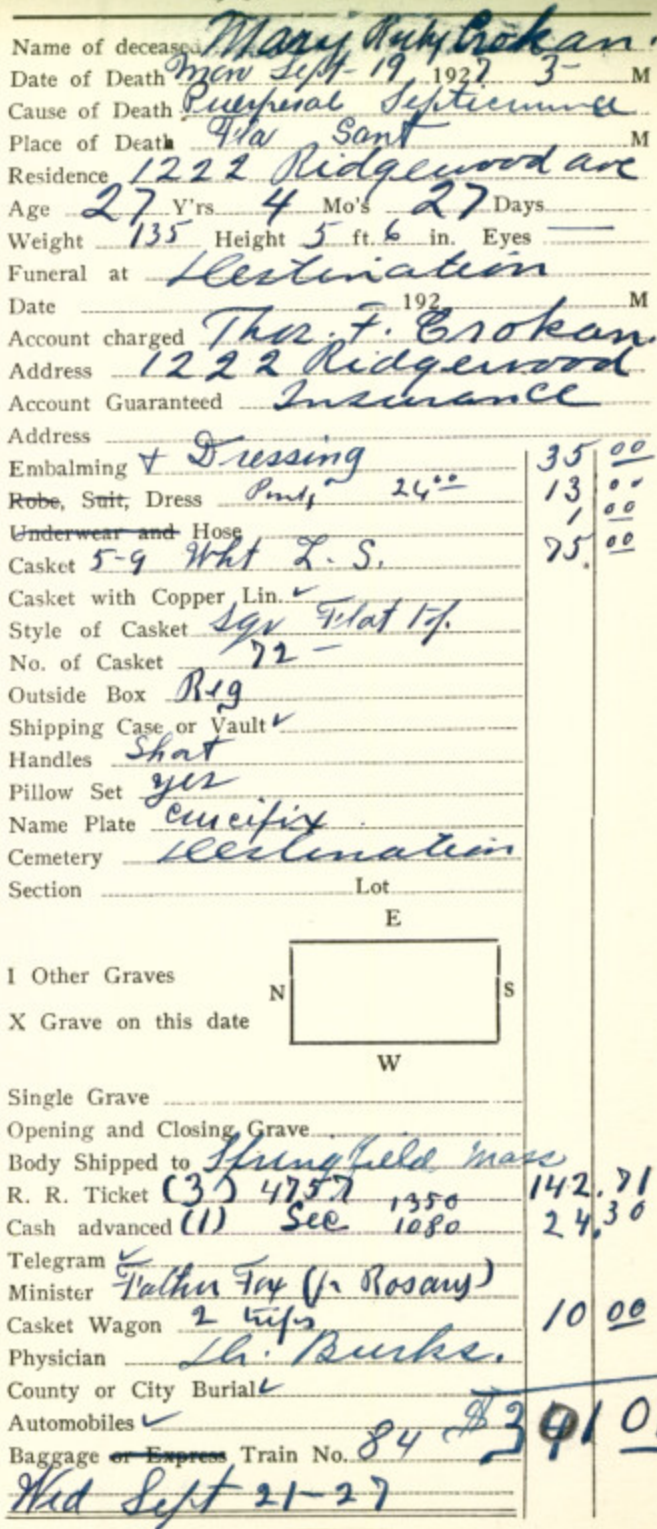 Name of deceased Mary Ruby Crokan.
Date of Death Mon Sept-19 1927 3- M
Cause of Death Puerperal Septicimma
Place of Death Fla Sant M
Residence 1222 Ridgewood ave
Age 27 Y'rs. 4 Mo's 27 Days
Weight 135 Height 5 ft. 6 in. Eyes —
Funeral at Destination
Date 192 M
Account charged Thos. F. Crokan.
Address 1222 Ridgewood
Account Guaranteed Insurance
Address
Embalming + Dressing 35 00
Robe, Suit, Dress Pink 24 00 13 00
Underwear and Hose 1 00
Casket 5-9 Wht L. S. 75. 00
Casket with Copper Lin. ✓
Style of Casket Sqr Flat Top.
No. of Casket 72 -
Outside Box Reg
Shipping Case or Vault ✓
Handles Short
Pillow Set yes
Name Plate Crucifix
Cemetery Destination
Section Lot
E
I Other Graves
N S
X Grave on this date
W
Single Grave
Opening and Closing Grave
Body Shipped to Springfield Mass
R. R. Ticket (3) 4757 142.71
Cash advanced (1) Sec 1350 1080 24.30
Telegram ✓
Minister Father Fox (for Rosary)
Casket Wagon 2 trips 10 00
Physician Dr. Burks.
County or City Burial ✓
Automobiles ✓ $301 0
Baggage or Express Train No. 84
Wed Sept 21-27